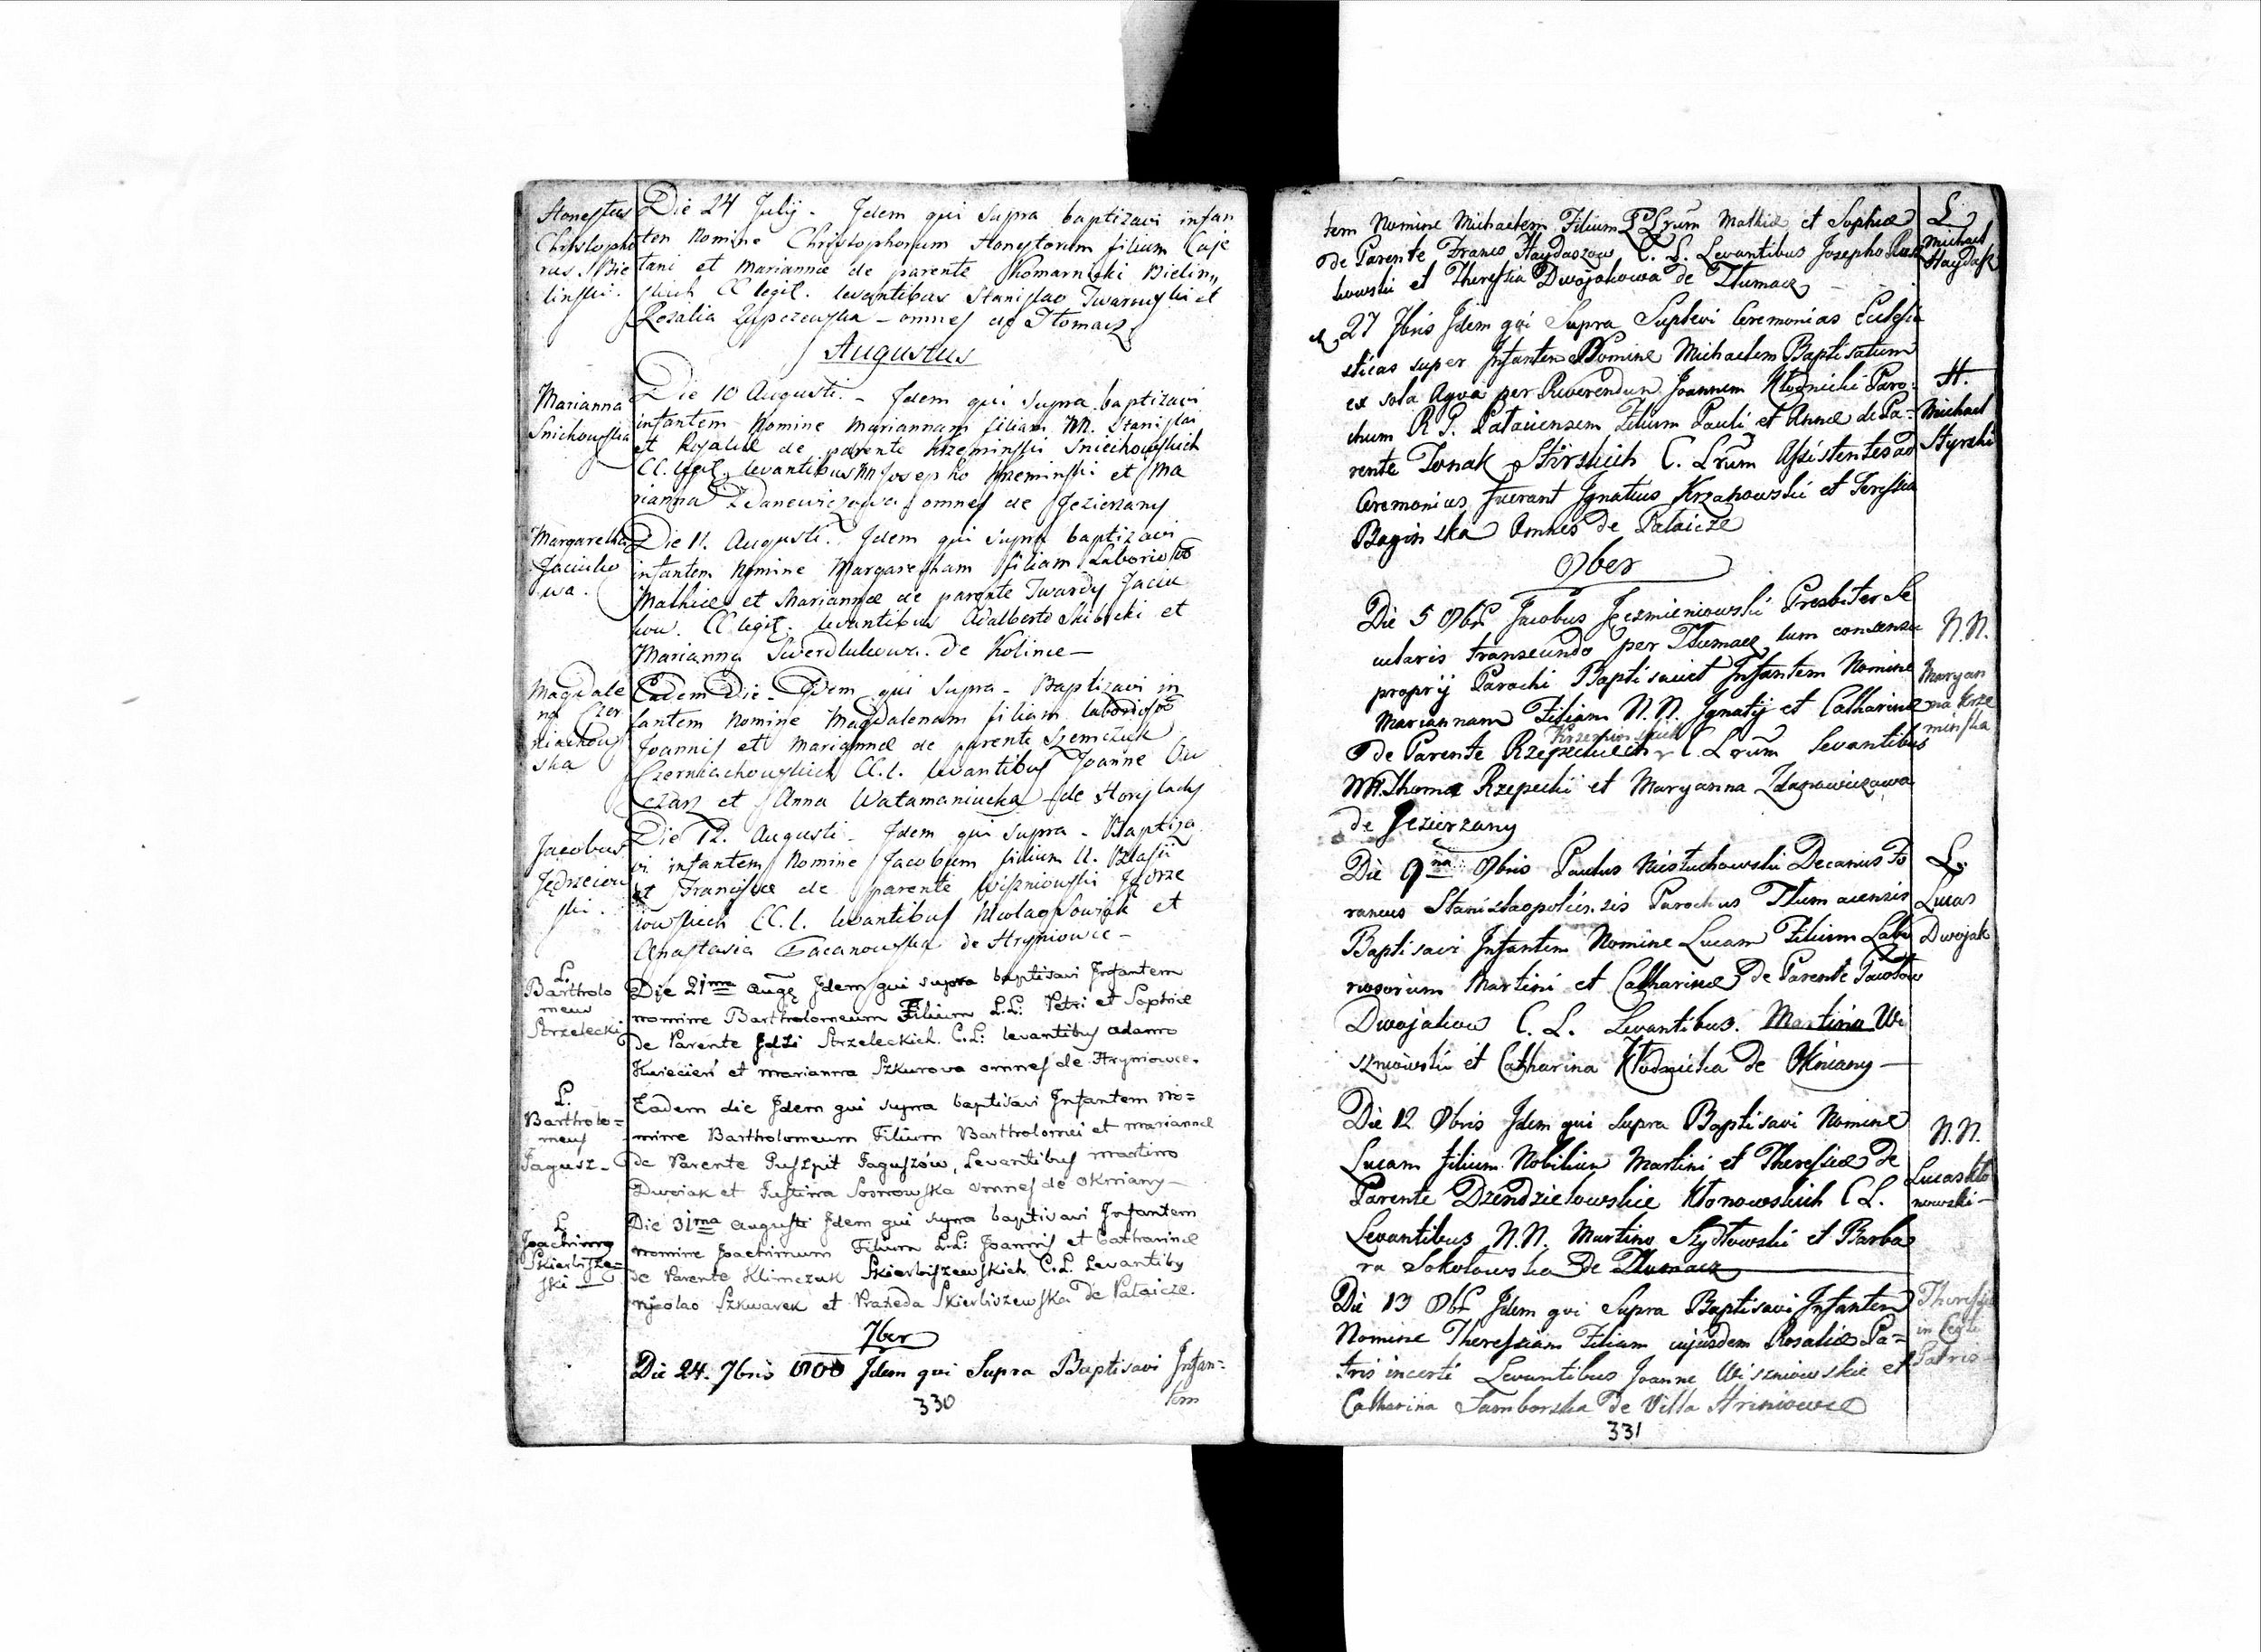 Honestus
Christopho
rus Bie
linski.
Die 24 Julij. Idem qui supra baptizavi infan
tem Nomine Christophorum Honestorum filium Caje
tani et Mariannæ de parente Komarnicki Bielin„
skich CC legit. levantibus Stanislao Twarowski et
Rozalia - omnes de Tłomacz
Augustus
Marianna
Snichowska
Die 10 Augusti. - Idem qui supra baptizavi
infantem Nomine Mariannam filiam NN. Stanislai
et Rosaliæ de parente Krzeminski Sniechowskich
CC. legit. levantibus NN Josepho Krzeminski et Ma
rianna Zdanewiczowa omnes de Jezierzany
Margaretha
Jaciuko
wa.
Die 11. Augusti. Idem qui supra baptizavi
infantem Nomine Margaretham filiam Laborioso
Mathiæ et Mariannæ de parente Twardy Jaciu
kow. CC legit. levantibus Adalberto Skibicki et
Marianna Swerdlukowa. de Kolince -
Magdale
na Czer
niachow
ska
Eadem Die. Idem qui supra - Baptizavi in
fantem Nomine Magdalenam filiam laborioso
Joannis et Mariannæ de parente Szemczuk
Czerniachowskich CC. l. levantibus Joanne Ow
czarz et Anna Watamaniucka - de Horyslady
Jacobus
Jędrzeiow
ski.
Die 12. Augusti - Idem qui supra - Baptiza
vi infantem Nomine Jacobum filium ll. Blasii
et Franciscæ de parente Wiszniowski Jędrze
iowskich CC. l. levantibus Nicolao Sowiak et
Anastasia Gacanowska de Hryniowce -
L.
Bartholo
meus
Strzelecki
Die 21ma Augę Idem qui supra baptisavi Infantem
nomine Bartholomeum Filium L.L: Petri et Sophiæ
de Parente Idzi Strzeleckich. C.L: levantibus Adamo
Kwiecień et Marianna Szkurowa omnes de Hryniowce.
L.
Bartholo=
meus
Jagusz-
Eadem die Idem qui supra baptisavi Infantem No=
mine Bartholomeum Filium Bartholomei et Mariannæ
de Parente Puszpit Jaguszów, Levantibus Martino
Dwoiak et Justina Sosnowska omnes de Okniany -
L.
Joachimus
Skierbisze=
ski -
Die 31ma Augusti Idem qui supra baptisavi Infantem
nomine Joachimum Filium L.L: Joannis et Catharinæ
de Parente Klimczuk Skierbiszewskich C.L. Levantibus
Nicolao Szkwarek et Praxeda Skierbiszewska de Palaicze.
7ber
Die 24. 7bris 1800 Idem qui Supra Baptisavi Infan=
tem
330
tem Nomine Michaelem Filium LLrum Mathiæ et Sophiæ
de Parente Franco Haydaszow C. L. Levantibus Josepho
kowski et Theressia Dwojakowa de Tłumacz
L.
Michael
Haydasz
27 7bris Idem qui Supra Suplevi Ceremonias Eclesia
sticas super Infantem Nomine Michaelem Baptisatum
ex sola Aqva per Reverendum Joannem Kłodnicki Paro
chum R. G. Palaicensem Filium Pauli et Annæ de Pa=
rente Tonak Stirskich C. Lrum Assistentes ad
Ceremonias fuerant Ignatius Krzakowski et Teressia
Baginska Omnes de Palaicze
H.
Michael
Styrski
8ber
Die 5 8br Jacobus Jęczmieniowski Presbiter Se
cularis transeundo per Tłumacz cum consensu
proprij Parochi Baptisavit Infantem Nomine
Mariannam Filiam N. N. Ignatij et Catharinæ
Krzeminskich
de Parente Rzepeckich C. Lrum Levantibus
NN. Thoma Rzepecki et Maryanna Zdanowiczowa
de Jezierzany
N.N.
Maryan
na Krze
minska
Die 9na 8bris Paulus Niesłuchowski Decanus Fo
raneus Stanislaopoliensis Parochus Tlumacensis
Baptisavi Infantem Nomine Lucam Filium Labo
riosorum Martini et Catharinæ de Parente Pawłow
Dwojakow C. L. Levantibus. Martino Wi
szniowski et Catharina Kłodnicka de Okniany -
L.
Lucas
Dwojak
Die 12 8bris Idem qui Supra Baptisavi Nomine
Lucam filium Nobilium Martini et Theressiæ de
Parente Dzendzielowskie Kłonowskich C L.
Levantibus N.N. Martino Szydłowski et Barba
ra Sokołowska de Tłumacz
N.N.
Lucas Kło
nowski -
Die 13 8br Idem qui Supra Baptisavi Infantem
Nomine Theressiam Filiam cujusdem Rosaliæ Pa=
tris incerti Levantibus Joanne Wiszniowskie et
Catharina Samborska de Villa Hriniowce
Theressia
in Certi
Patris
331